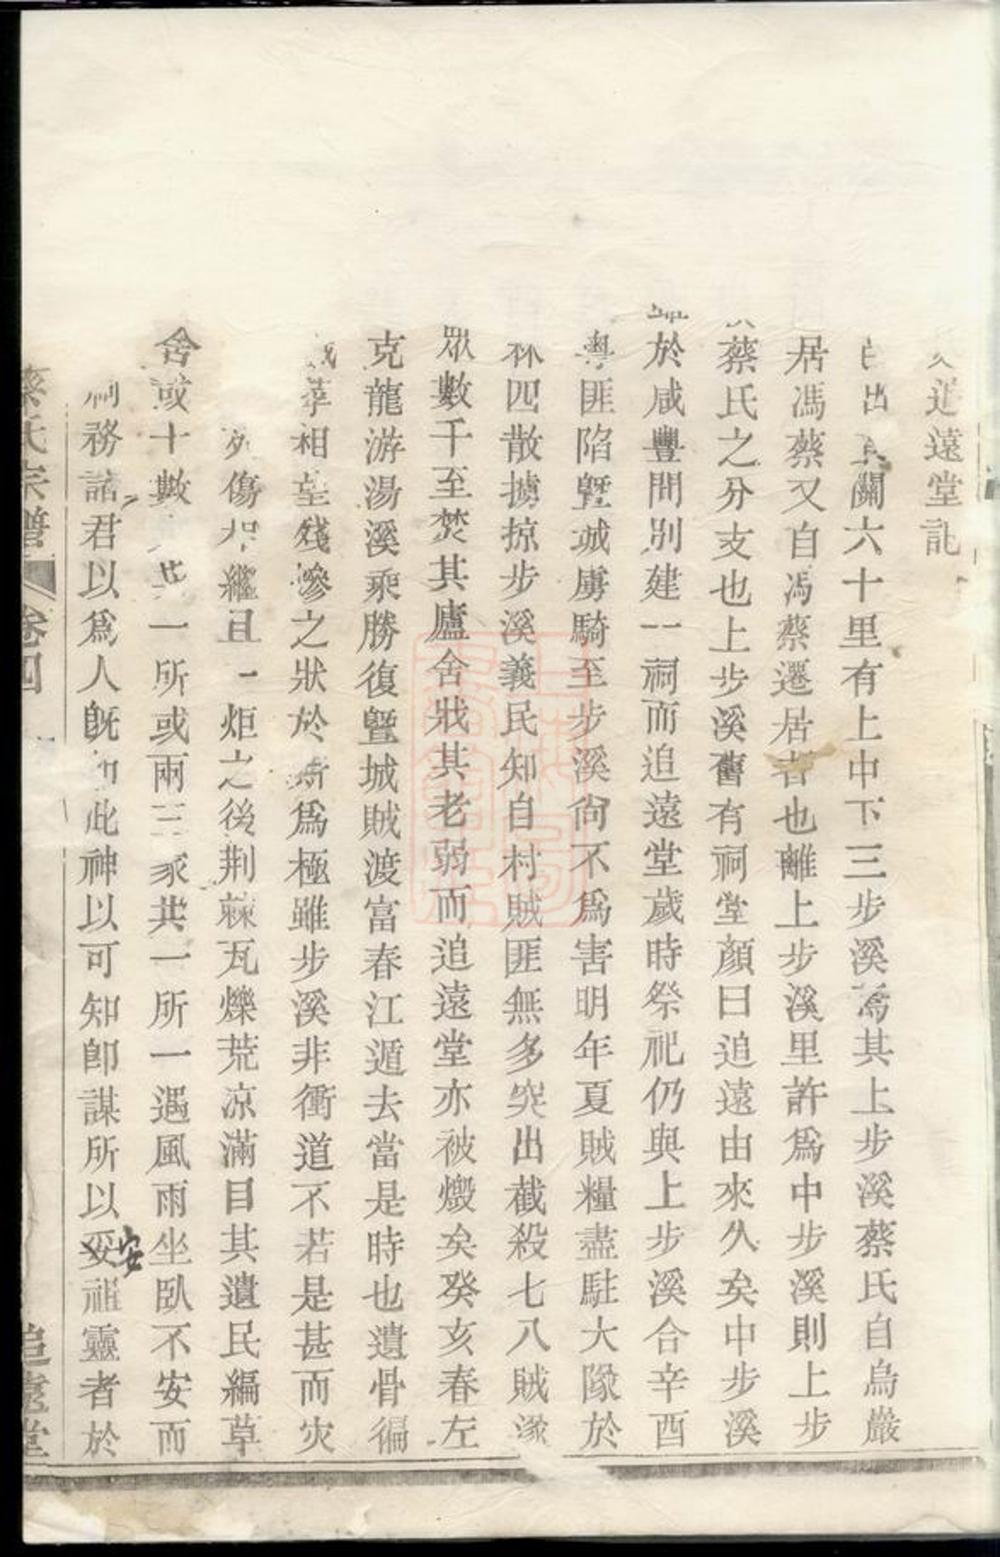 追遠堂記
出關六十里有上中下三步溪焉其上步溪蔡氏自烏巖
居馮蔡又自馮蔡遷居者也離上步溪里許爲中步溪則上步
蔡氏之分支也上步溪舊有祠堂顏曰追遠由來久矣中步溪
於咸豐間別建一祠而追遠堂歲時祭祀仍與上步溪合辛酉
粵匪陷曁城虜騎至步溪尙不爲害明年夏賊糧盡駐大隊於
林四散擄掠步溪義民知自村賊匪無多突出截殺七八賊遂
眾數千至焚其廬舍戕其老弱而追遠堂亦被燬矣癸亥春左
克龍游湯溪乘勝復曁城賊渡富春江遁去當是時也遺骨徧
莩相望殘慘之狀於斯爲極雖步溪非衝道不若是甚而灾
傷相繼且一炬之後荆棘瓦爍荒凉滿目其遺民編草
舍或十數一所或兩三家共一所一遇風雨坐臥不安而
祠務諸君以爲人旣如此神以可知卽謀所以妥安祖靈者於
蔡氏宗譜 卷四 追遠堂